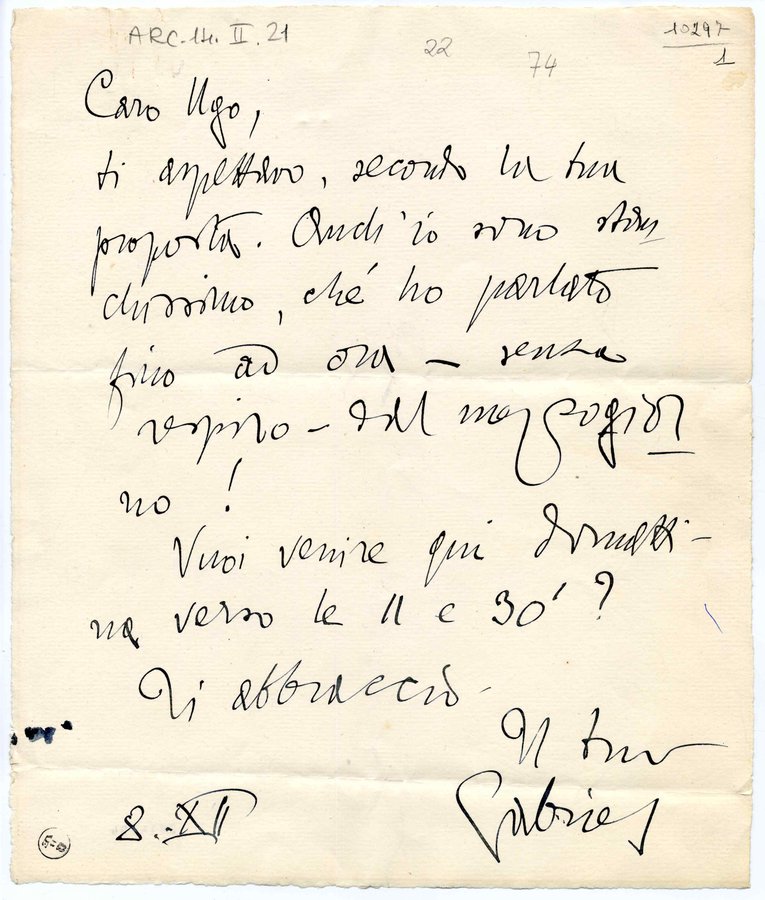 ARC.14.II.21
22
74
10297
1
Caro Ugo,
ti aspettavo, secondo la tua
proposta. Anch'io sono stan
chissimo, ché ho parlato
fino ad ora – senza
respiro – dal mezzogior
no!
Vuoi venire qui domatti-
na verso le 11 e 30'?
Ti abbraccio.
Il tuo
Gabriel
8..XII